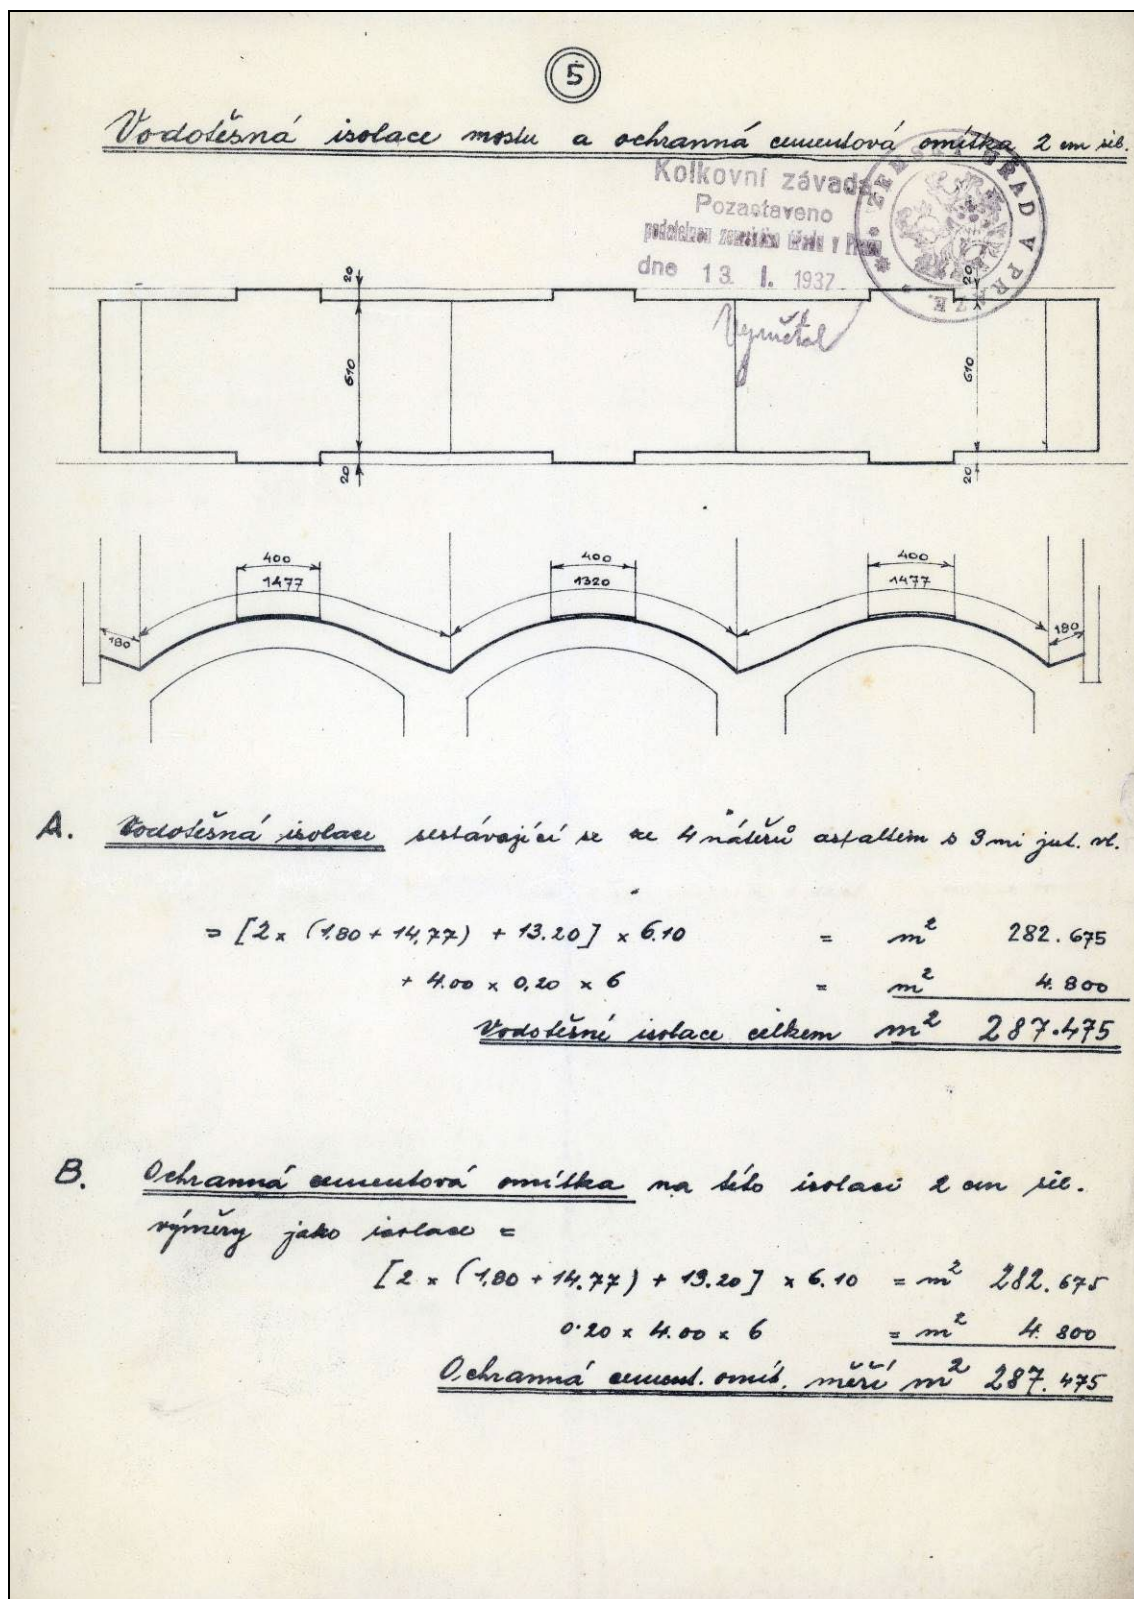 5
Vodotěsná isolace mostu a ochranná cementová omítka 2 cm sil.
Kolkovní závada
Pozastaveno
podatelnou zemského úřadu v Praze
dne 13. I. 1937.
ZEMSKÝ ÚŘAD V PRAZE.
20 20
610 610
20 20
400 400 400
1477 1320 1477
180 180
A. Vodotěšná isolace sestávající se ze 4 nátěrů asfaltem s 3mi jut. vl.
= [2 x (1.80 + 14,77) + 13.20] x 6.10 = m² 282.675
+ 4.00 x 0,20 x 6 = m² 4.800
Vodotěšné isolace celkem m² 287.475
B. Ochranná cementová omítka na této isolaci 2 cm sil.
výměry jako isolace =
[2 x (1,80 + 14.77) + 13.20] x 6.10 = m² 282.675
0.20 x 4.00 x 6 = m² 4.800
Ochranná cement. omít. měří m² 287.475